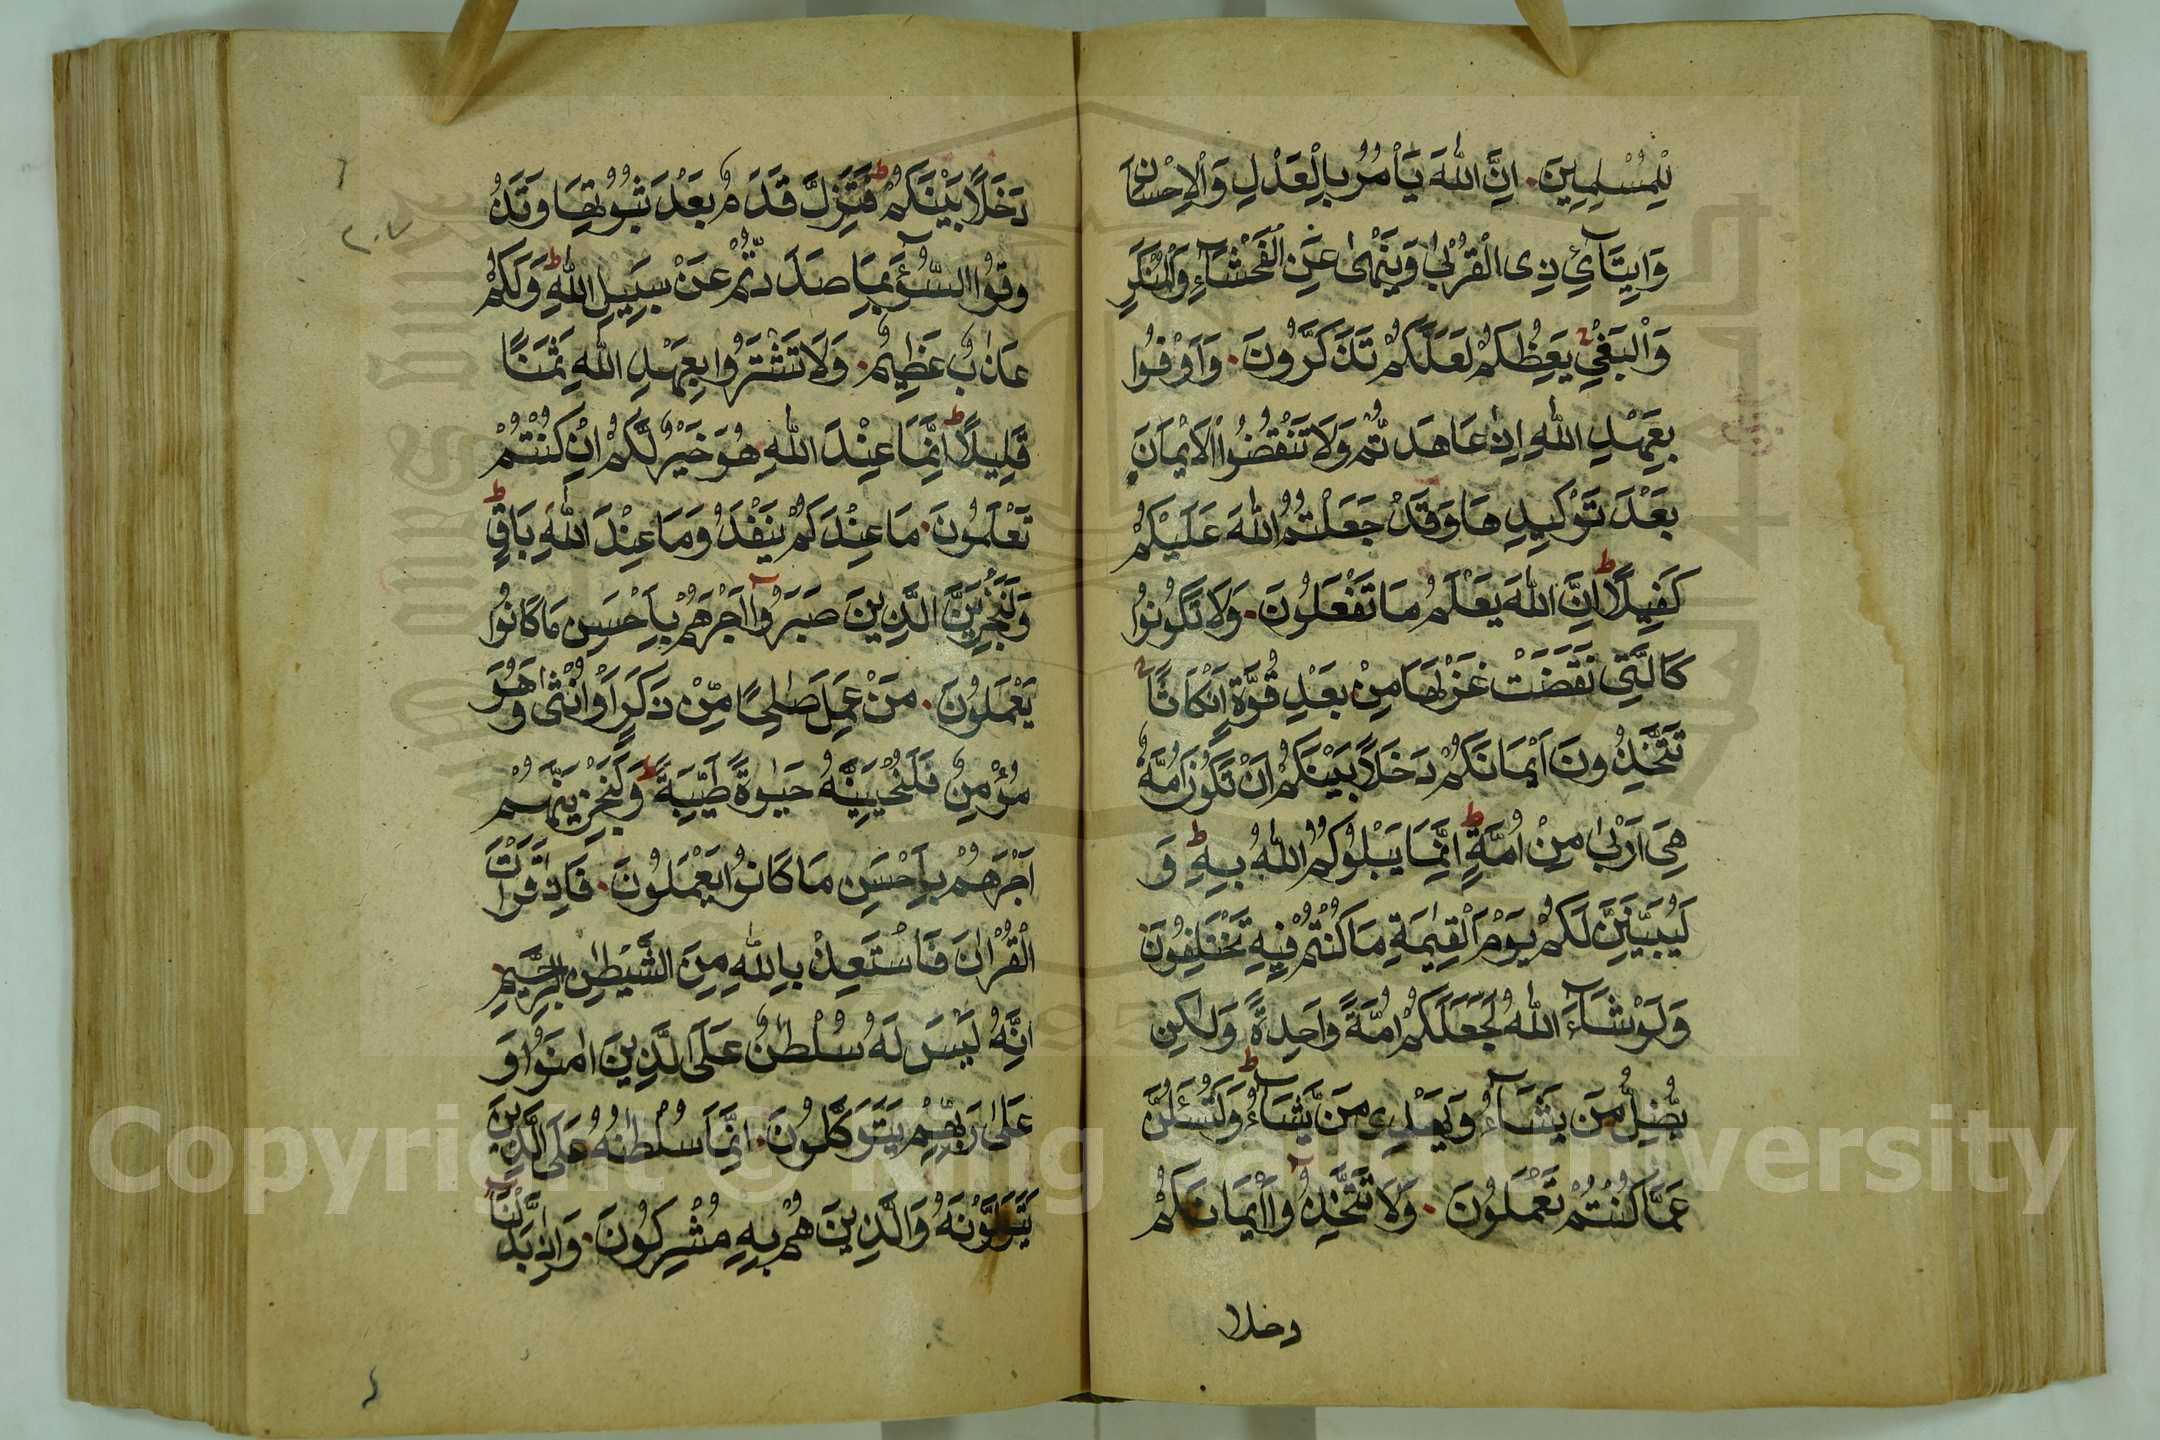 لِلْمُسْلِمِينَ. اِنَّ اللّٰهَ يَاْمُرُ بِالْعَدْلِ وَالْاِحْسَانِ
وَاِيتَآئِ ذِى الْقُرْبٰى وَيَنْهٰى عَنِ الْفَحْشَآءِ وَالْمُنْكَرِ
وَالْبَغْىِ يَعِظُكُمْ لَعَلَّكُمْ تَذَكَّرُونَ. وَاَوْفُوا
بِعَهْدِ اللّٰهِ اِذَا عَاهَدْتُمْ وَلَا تَنْقُضُوا الْاَيْمَانَ
بَعْدَ تَوْكِيدِهَا وَقَدْ جَعَلْتُمُ اللّٰهَ عَلَيْكُمْ
كَفِيلًا ط اِنَّ اللّٰهَ يَعْلَمُ مَا تَفْعَلُونَ. وَلَا تَكُونُوا
كَالَّتِى نَقَضَتْ غَزْلَهَا مِنْ بَعْدِ قُوَّةٍ اَنْكَاثًا
تَتَّخِذُونَ اَيْمَانَكُمْ دَخَلًا بَيْنَكُمْ اَنْ تَكُونَ اُمَّةٌ
هِىَ اَرْبٰى مِنْ اُمَّةٍ ط اِنَّمَا يَبْلُوكُمُ اللّٰهُ بِهِ ط وَ
لَيُبَيِّنَنَّ لَكُمْ يَوْمَ الْقِيٰمَةِ مَا كُنْتُمْ فِيهِ تَخْتَلِفُونَ
وَلَوْ شَآءَ اللّٰهُ لَجَعَلَكُمْ اُمَّةً وَاحِدَةً وَلٰكِنْ
يُضِلُّ مَنْ يَشَآءُ وَيَهْدِى مَنْ يَّشَآءُ ط وَلَتُسْئَلُنَّ
عَمَّا كُنْتُمْ تَعْمَلُونَ. وَلَا تَتَّخِذُوٓا اَيْمَانَكُمْ
دخلا
دَخَلًا بَيْنَكُمْ ط فَتَزِلَّ قَدَمٌ بَعْدَ ثُبُوتِهَا وَتَذُ
وقُوا السُّوٓءَ بِمَا صَدَدْتُّمْ عَنْ سَبِيلِ اللّٰهِ ط وَلَكُمْ
عَذَابٌ عَظِيمٌ. وَلَا تَشْتَرُوا بِعَهْدِ اللّٰهِ ثَمَنًا
قَلِيلًا ط اِنَّمَا عِنْدَ اللّٰهِ هُوَ خَيْرٌ لَّكُمْ اِنْ كُنْتُمْ
تَعْلَمُونَ. مَا عِنْدَكُمْ يَنْفَدُ وَمَا عِنْدَ اللّٰهِ بَاقٍ ط
وَلَنَجْزِيَنَّ الَّذِينَ صَبَرُوٓا اَجْرَهُمْ بِاَحْسَنِ مَا كَانُوا
يَعْمَلُونَ. مَنْ عَمِلَ صَالِحًا مِّنْ ذَكَرٍ اَوْ اُنْثٰى وَهُوَ
مُؤْمِنٌ فَلَنُحْيِيَنَّهُ حَيٰوةً طَيِّبَةً ط وَلَنَجْزِيَنَّهُمْ
اَجْرَهُمْ بِاَحْسَنِ مَا كَانُوا يَعْمَلُونَ. فَاِذَا قَرَاْتَ
الْقُرْاٰنَ فَاسْتَعِذْ بِاللّٰهِ مِنَ الشَّيْطٰنِ الرَّجِيمِ.
اِنَّهُ لَيْسَ لَهُ سُلْطٰنٌ عَلَى الَّذِينَ اٰمَنُوا وَ
عَلٰى رَبِّهِمْ يَتَوَكَّلُونَ. اِنَّمَا سُلْطٰنُهُ عَلَى الَّذِينَ
يَتَوَلَّوْنَهُ وَالَّذِينَ هُمْ بِهِ مُشْرِكُونَ. وَاِذَا بَدَّلْنَآ
٢٠٧
Copyright © King Saud University